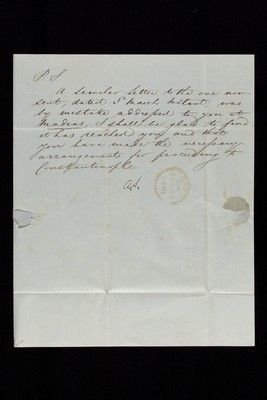 P.S.
A similar letter to the one now
sent, dated 5 March Instant, was
by mistake addressed to you at
Madras, I shall be glad to find
it has reached you and that
you have made the necessary
arrangements for proceeding to
Constantinople.